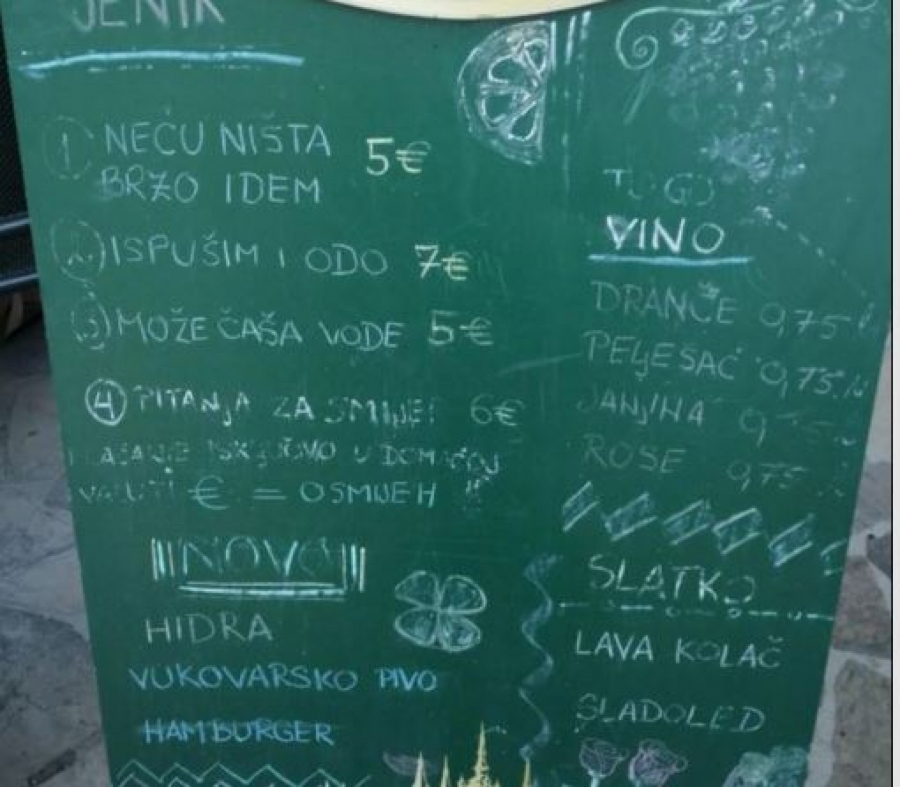 JENIK
1 NEĆU NIŠTA 5€
BRZO IDEM
2 ISPUŠIM I ODO 7€
3 MOŽE ČAŠA VODE 5€
4 PITANJA ZA SMIJEH 6€
PLAĆANJE ISKLJUČIVO U DOMAĆOJ
VALUTI € = OSMIJEH
NOVO
HIDRA
VUKOVARSKO PIVO
HAMBURGER
TO GO
VINO
DRANČE 0,75 l
PELJEŠAC 0,75
JANJINA
ROSE 0,75
SLATKO
LAVA KOLAČ
SLADOLED